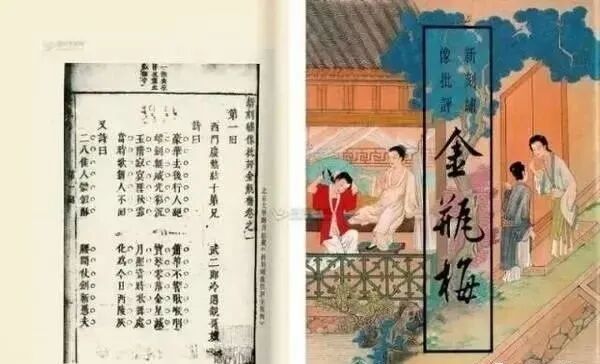 新刻繡像批評金瓶梅卷之一
第一回
西門慶熱結十弟兄 武二郎冷遇親哥嫂
詩曰
豪華去後行人絕 簫箏不響歌喉咽
雄劍無威光彩沉 寶琴零落金星滅
玉階寂寞墜秋露 月照當時歌舞處
當時歌舞人不回 化為今日西陵灰
又詩曰
二八佳人體似酥 腰間仗劍斬愚夫
新刻繡
像批評
金瓶梅